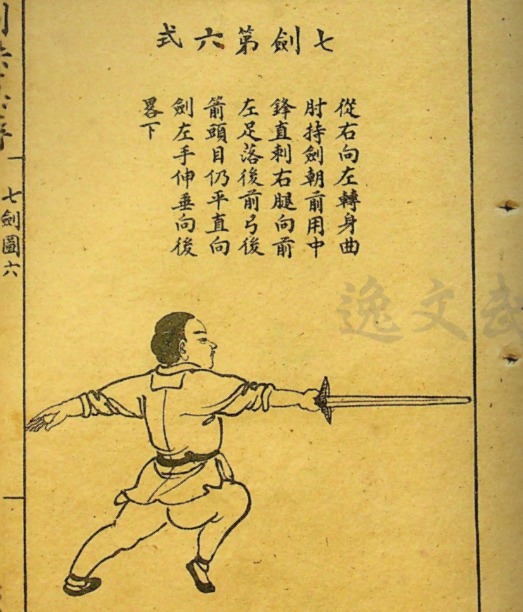 七劍第六式
從右向左轉身曲
肘持劍朝前用中
鋒直刺右腿向前
左足落後前弓後
箭頭目仍平直向
劍左手伸垂向後
畧下
七劍圖六
逸文武